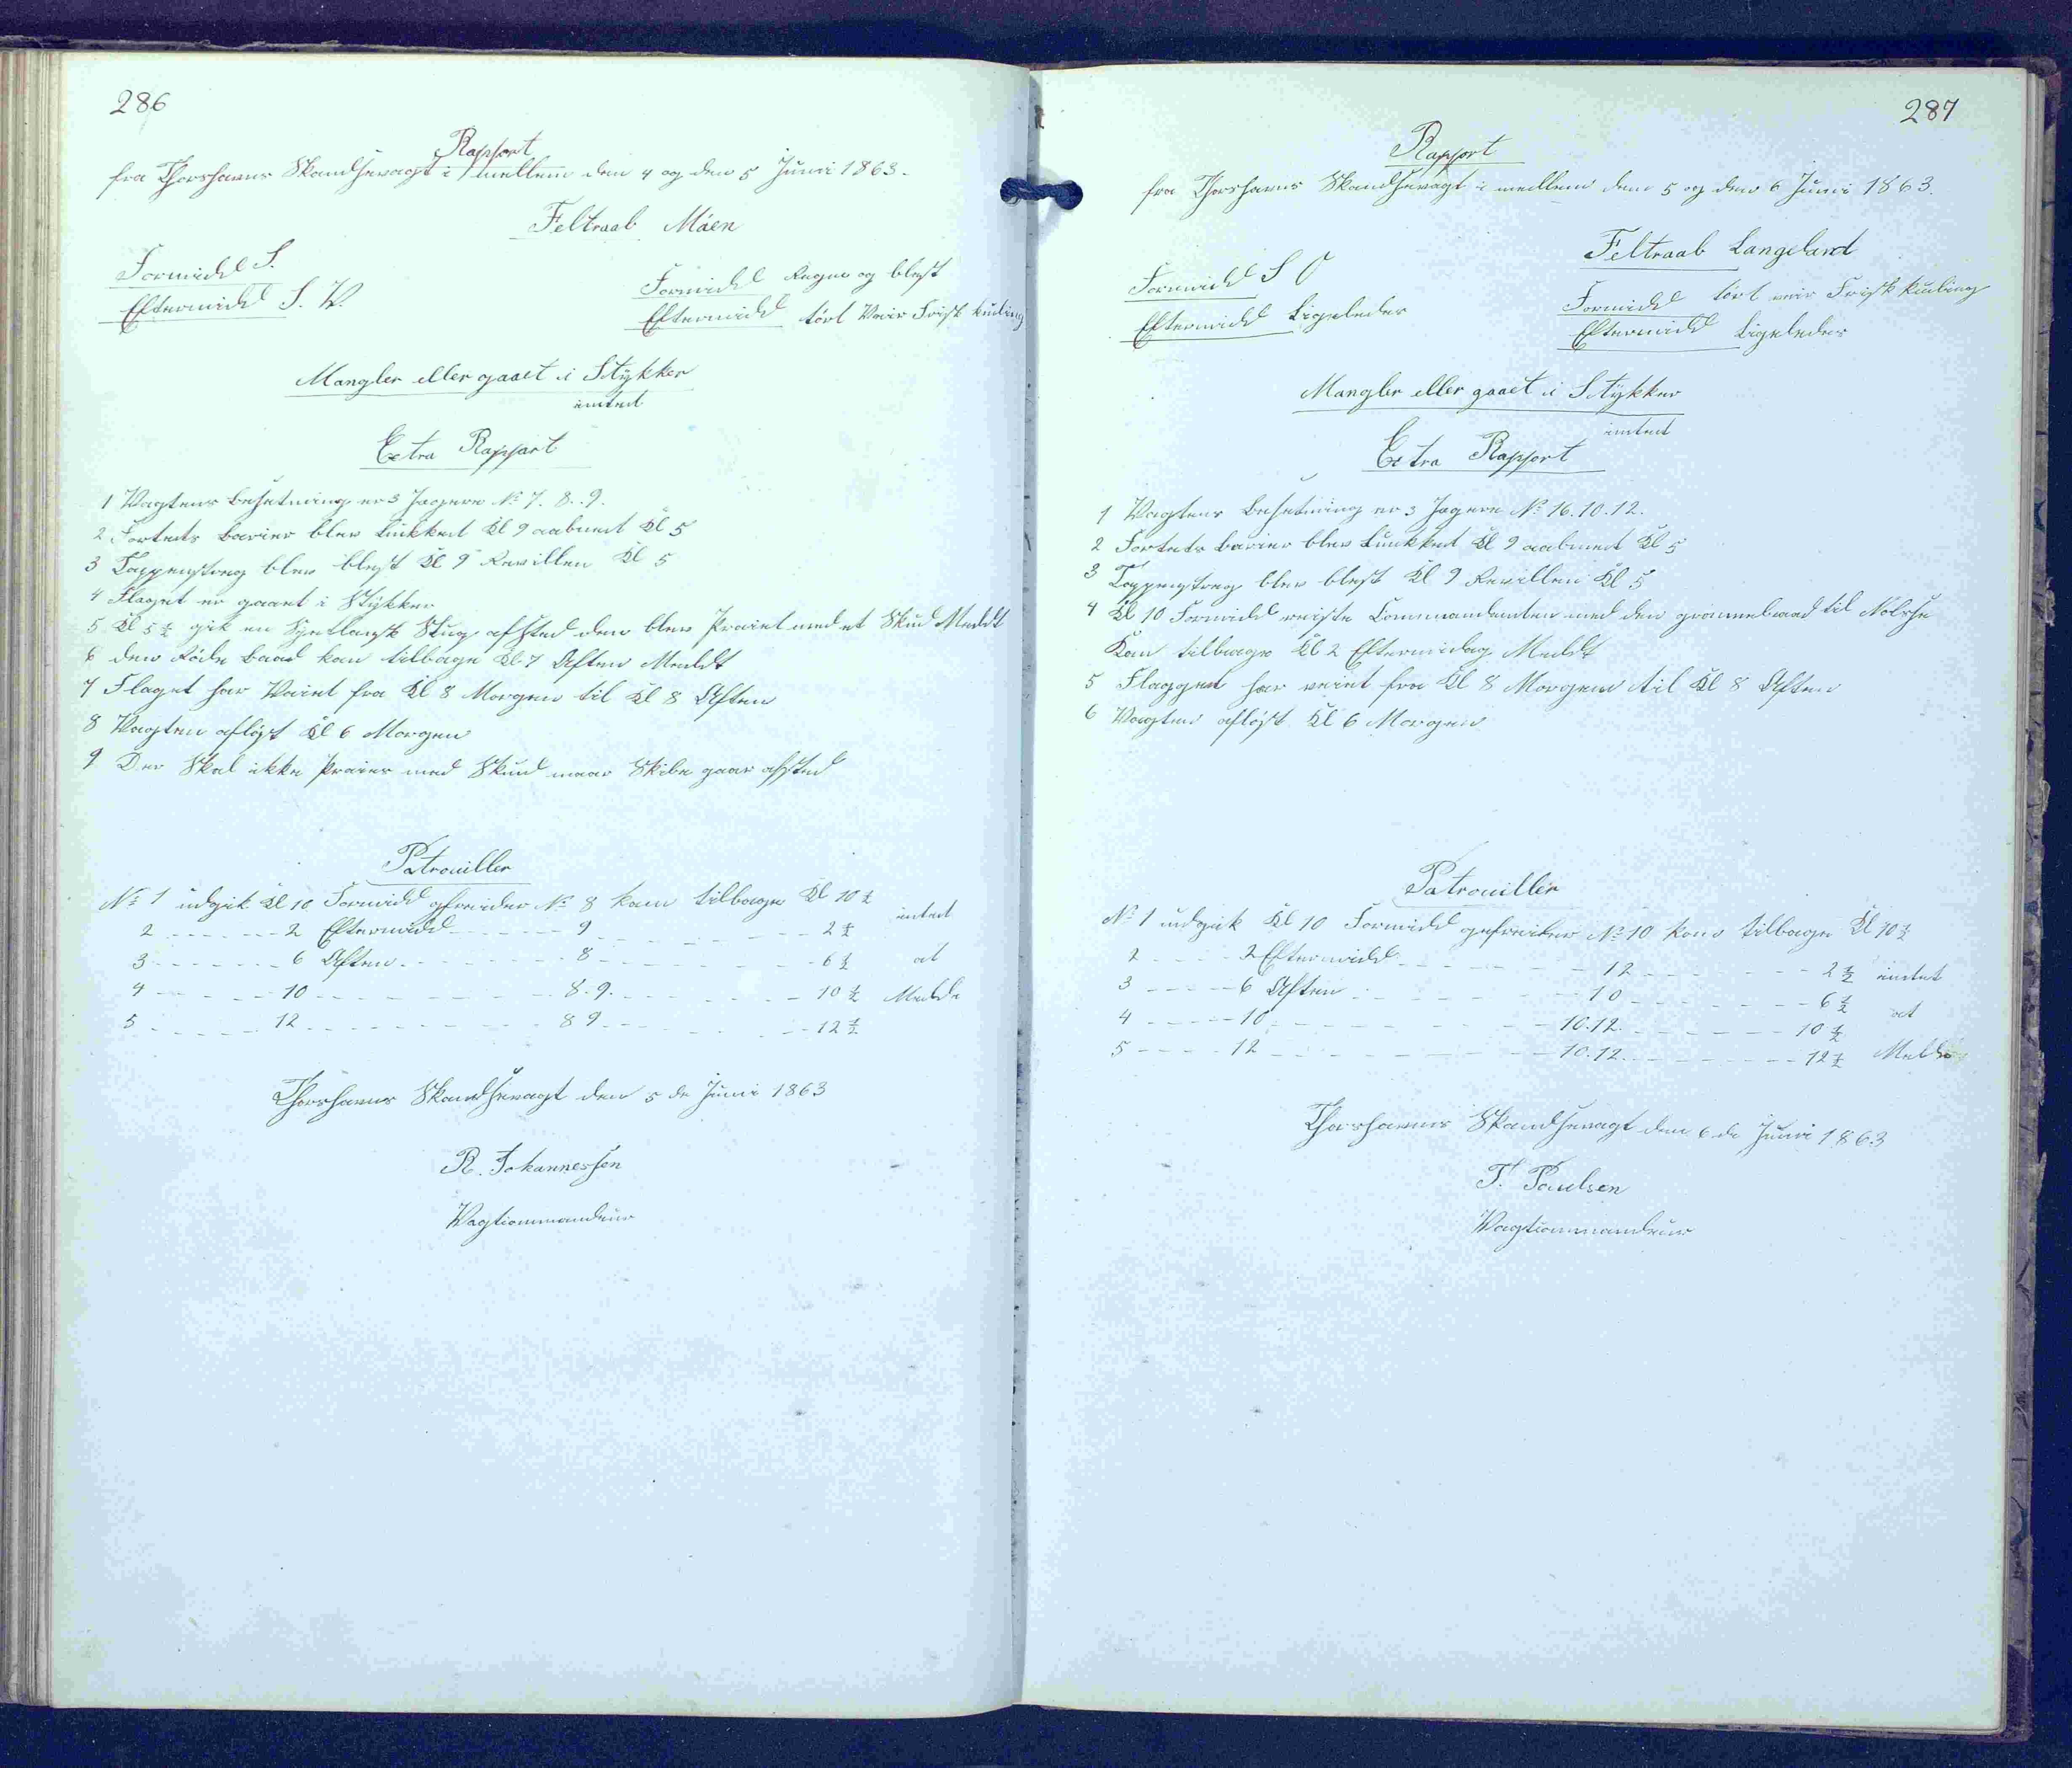 286
Rapport
fra Thorshavns Skandsevagt i mellem den 4 og den 5 Juni 1863.
Feltraab Möen
Formidd S.
Eftermidd S. W.
Formidd Regn og blest
Eftermidd tört Veir Frisk kuling
Mangler eller gaaet i Stykker
intet
Extra Rapport
1 Vagtens besetning er 3 Jægere No 7. 8. 9.
2 Fortets barier blev lukket Kl 9 aabnet Kl 5
3 Tappenstreg blev blest Kl 9 Revillen Kl 5
4 Flaget er gaaet i Stykker
5 Kl 5 ½ gik en Syetlansk Slug afsted den blev Praiet med et Skud Meldt
6 den Röde baad kom tilbage Kl 7 Aften Meldt
7 Flaget har Vaiet fra Kl 8 Morgen til Kl 8 Aften
8 Vagten aflöst Kl 6 Morgen
9 Der Skal ikke Praies med Skud naar Skibe gaar afsted
Patrouiller
No 1 udgik Kl 10 Formidd gefreider No 8 kom tilbage Kl 10 ½ intet
2 - - - - - - 2 Eftermidd - - - - - 9 - - - - - - - 2 ½
3 - - - - - - 6 Aften - - - - - - 8 - - - - - - - 6 ½ at
4 - - - - - - 10 - - - - - - - - 8. 9. - - - - - - 10 ½ Melde
5 - - - - - - 12 - - - - - - - - 8 9 - - - - - - 12 ½
Thorshavns Skandsevagt den 5 de Juni 1863
R. Johannessen
Vagtcommandeur
287
Rapport
fra Thorshavns Skandsevagt i mellem den 5 og den 6 Juni 1863.
Feltraab Langeland
Formidd S O
Eftermidd Ligeledes
Formidd tört veir Frisk kuling
Eftermidd Ligeledes
Mangler eller gaaet i Stykker
intet
Extra Rapport
1 Vagtens besetning er 3 Jægere No 16. 10. 12.
2 Fortets barier blev Lukket Kl 9 aabnet Kl 5
3 Tappenstreg blev blest Kl 9 Revillen Kl 5
4 Kl 10 Formidd reiste Commandanten med den grönnebaad til Nolsye
Kom tilbage Kl 2 Eftermidag Meldt
5 Flagget har veiet fra Kl 8 Morgen til Kl 8 Aften
6 Vagten aflöst Kl 6 Morgen
Patrouiller
No 1 udgik Kl 10 Formidd gefreider No 10 kom tilbage Kl 10 ½
2 - - - - 2 Eftermidd - - - - - - 12 - - - - - - 2 ½ intet
3 - - - - 6 Aften - - - - - - - 10 - - - - - - 6 ½ at
4 - - - - 10 - - - - - - - - 10. 12. - - - - - - 10 ½
5 - - - - 12 - - - - - - - - 10. 12. - - - - - - 12 ½ Melde
Thorshavns Skandsevagt den 6 de Juni 1863
T. Poulsen
Vagtcommandeur